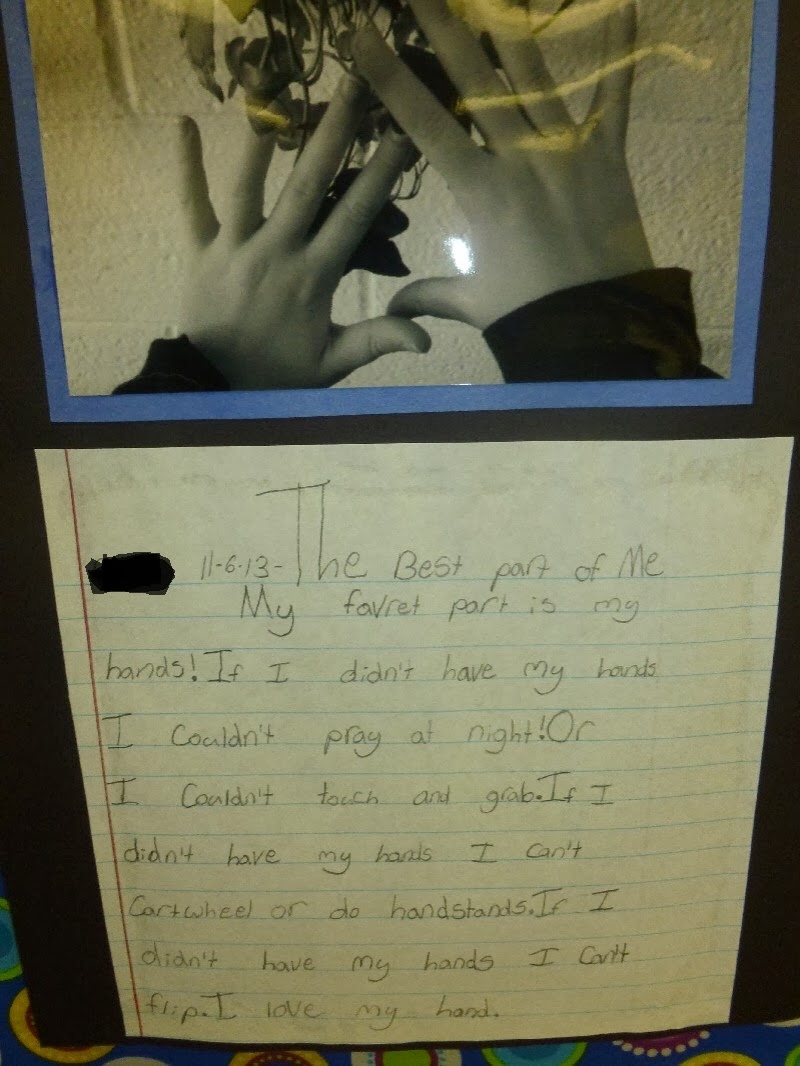 11-6-13- The Best part of Me
My favret part is my
hands! If I didn't have my hands
I Couldn't pray at night! Or
I Couldn't touch and grab. If I
didn't have my hands I Can't
Cartwheel or do handstands. If I
didn't have my hands I Can't
flip. I love my hand.